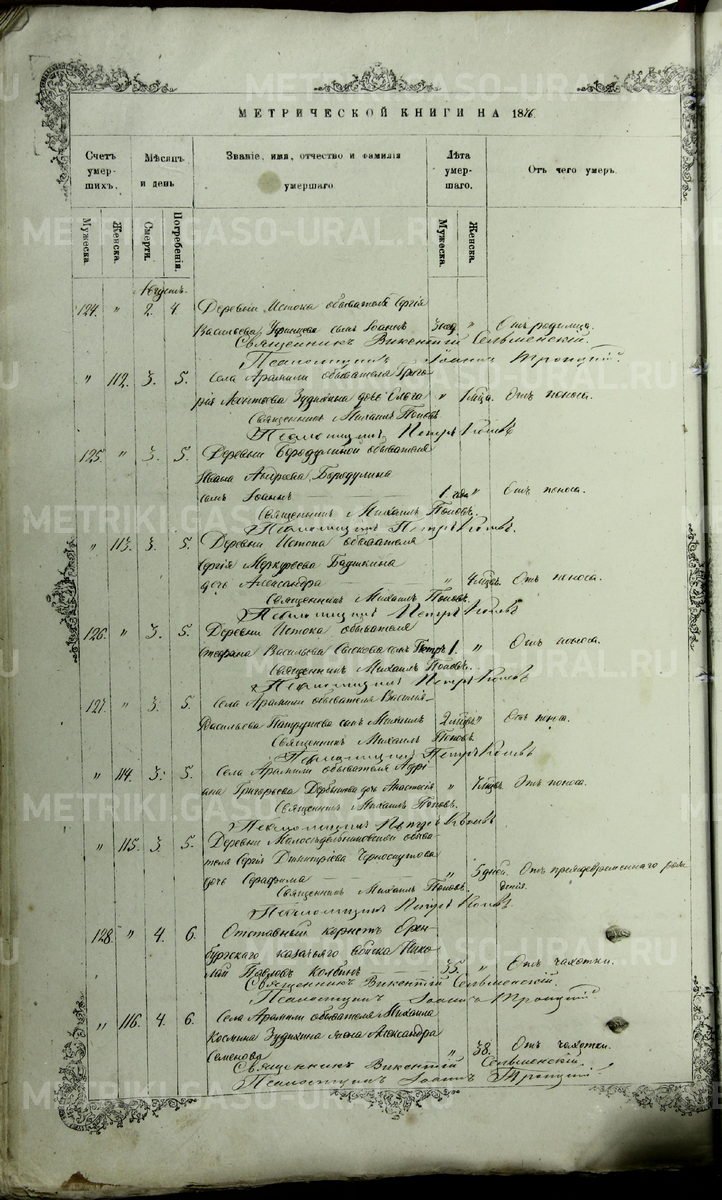 МЕТРИЧЕСКОЙ КНИГИ НА 1876.
Счетъ умер-шихъ.
Мѣсяцъ и день
Званіе, имя, отчество и фамилія умершаго
Лѣта умер-шаго.
Отъ чего умеръ.
Мужеска.
Женска.
Смерти.
Погребенія.
Мужеска.
Женска.
Августъ.
124. " 2. 4. Деревни Истока обывателя Сергія
Васильева сынъ Іоаннъ " Отъ родимца.
Священникъ Викентій Сельменскій.
Псаломщикъ Іоаннъ Троицкій.
" 112. 3. 5. Села Арамили обывателя Григо-
рія Леонтьева Зудихина дочь Ольга " Отъ поноса.
Священникъ Михаилъ Поповъ.
Псаломщикъ Петръ
125. " 3. 5. Деревни Бородулиной обывателя
Ивана Андреева Бородулина
сынъ Іоаннъ 1. года " Отъ поноса.
Священникъ Михаилъ Поповъ.
Псаломщикъ Петръ
" 113. 3. 5. Деревни Истока обывателя
Сергія Меркурьева
дочь Александра " Отъ поноса.
Священникъ Михаилъ Поповъ.
Псаломщикъ Петръ
126. " 3. 5. Деревни Истока обывателя
Стефана Васильева сынъ Петръ 1. " Отъ поноса.
Священникъ Михаилъ Поповъ.
Псаломщикъ Петръ
127. " 3. 5. Села Арамили обывателя Василія
Васильева Патрушева сынъ Михаилъ " Отъ поноса.
Священникъ Михаилъ Поповъ.
Псаломщикъ Петръ
" 114. 3. 5. Села Арамили обывателя Адрі-
ана Григорьева дочь Анастасія " Отъ поноса.
Священникъ Михаилъ Поповъ.
Псаломщикъ Петръ
" 115. 3. 5. Деревни обыва-
теля Сергія Димитріева Черноскутова
дочь Серафима " 5 дней. Отъ преждевременнаго рож-
Священникъ Михаилъ Поповъ. денія.
Псаломщикъ Петръ
128. " 4. 6. Отставный корнетъ Орен-
бургскаго казачьяго войска Нико-
лай Павловъ 35. " Отъ чахотки.
Священникъ Викентій Сельменскій.
Псаломщикъ Іоаннъ Троицкій.
" 116. 4. 6. Села Арамили обывателя Михаила
Космина Зудихина жена Александра
Семенова " 38. Отъ чахотки.
Священникъ Викентій Сельменскій.
Псаломщикъ Іоаннъ Троицкій.
METRIKI.GASO-URAL.RU